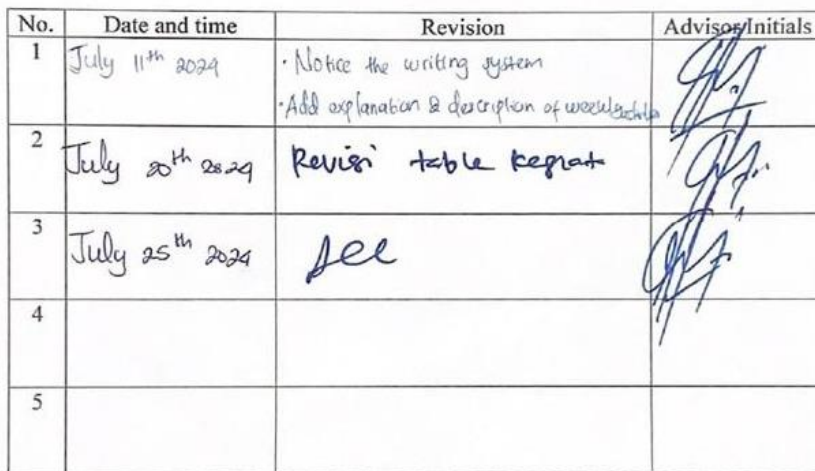 No. Date and time Revision Advisor Initials
1 July 11th 2024 · Notice the writing system
· Add explanation & description of
2 July 20th 2024 Revisi table
3 July 25th 2024 Acc
4
5